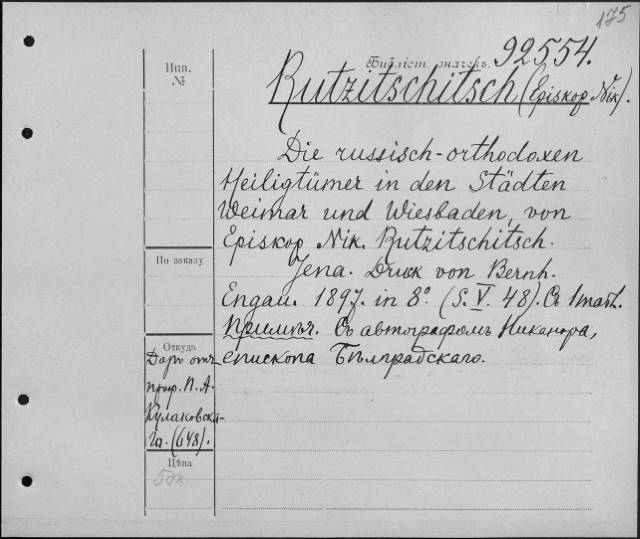 175
Инв. №
Библіот. значекъ. 92554.
Rutzitschitsch (Episkop Nik).
Die russisch-orthodoxen
Heiligtümer in den Städten
Weimar und Wiesbaden, von
Episkop Nik. Rutzitschitsch.
Jena. Druck von Bernh.
Engau. 1897. in 8.° (S. V. 48). Съ 1 табл.
Примѣч. Съ автографомъ Никанора,
епископа Бѣлградскаго.
По заказу
Откуда
Даръ отъ
проф. П. А.
Кулаковска-
го. (648).
Цѣна
50к.